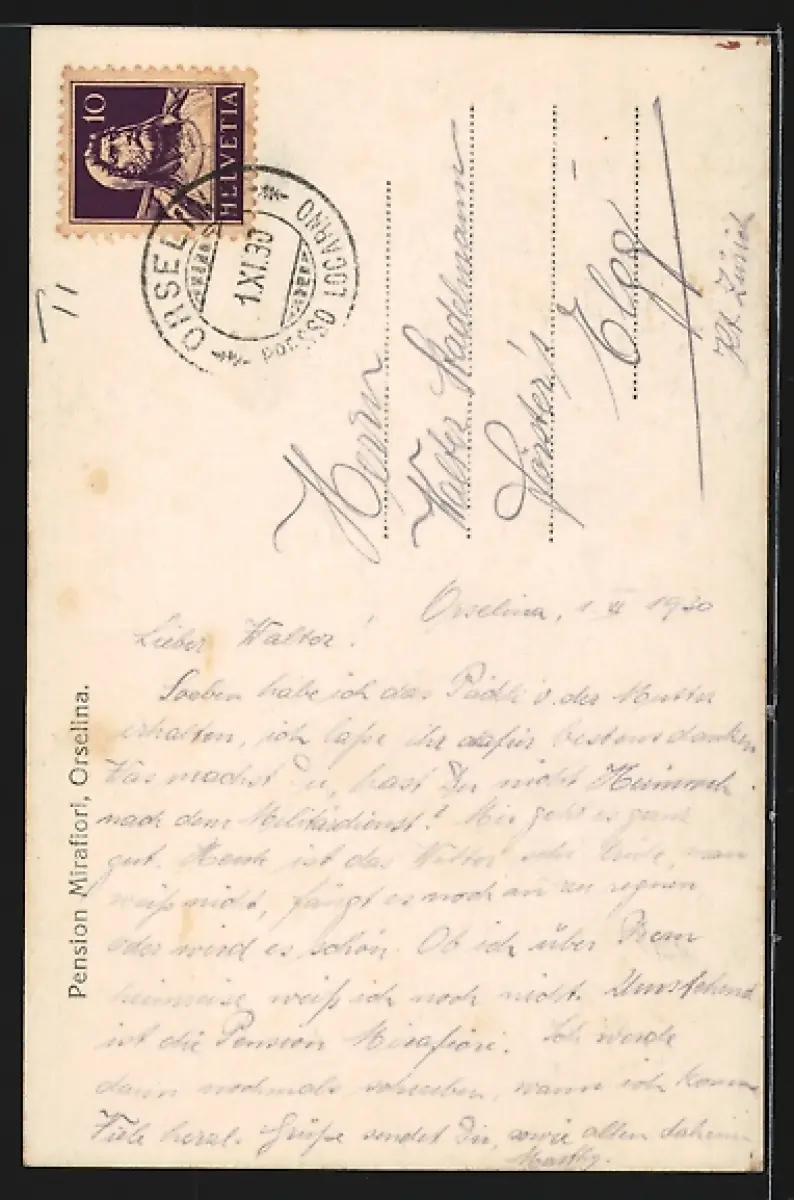 10
HELVETIA
ORSELINA
1.XI.30
PRESSO LOCARNO
TI
Herrn
Walter Stadelmann
Förster's
Elgg
Kt. Zürich
Pension Mirafiori, Orselina.
Orselina, 1 XI 1930
Lieber Walter!
Soeben habe ich das Päckli v. der Mutter
erhalten, ich laße ihr dafür bestens danken
Was machst Du, hast Du nicht Heimweh
nach dem Militärdienst? Mir geht es ganz
gut. Heute ist das Wetter man
weiß nicht, fängt es noch an zu regnen
oder wird es schön. Ob ich über
heimreise weiß ich noch nicht. Umstehend
ist die Pension Mirafiori. Ich werde
dann nochmals schreiben, wann ich komme
Viele herzl. Grüße sendet Dir, sowie allen daheim